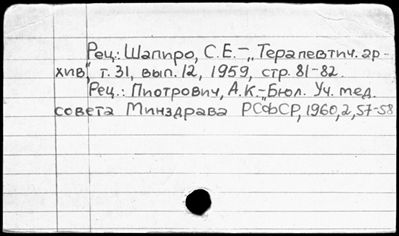 Рец.: Шапиро, С.Е.-„Терапевтич. ар-
хив", т. 31, вып. 12, 1959, стр. 81-82.
Рец.: Пиотрович, А.К.-„Бюл. Уч. мед.
совета Минздрава РСФСР, 1960, 2, 57-58